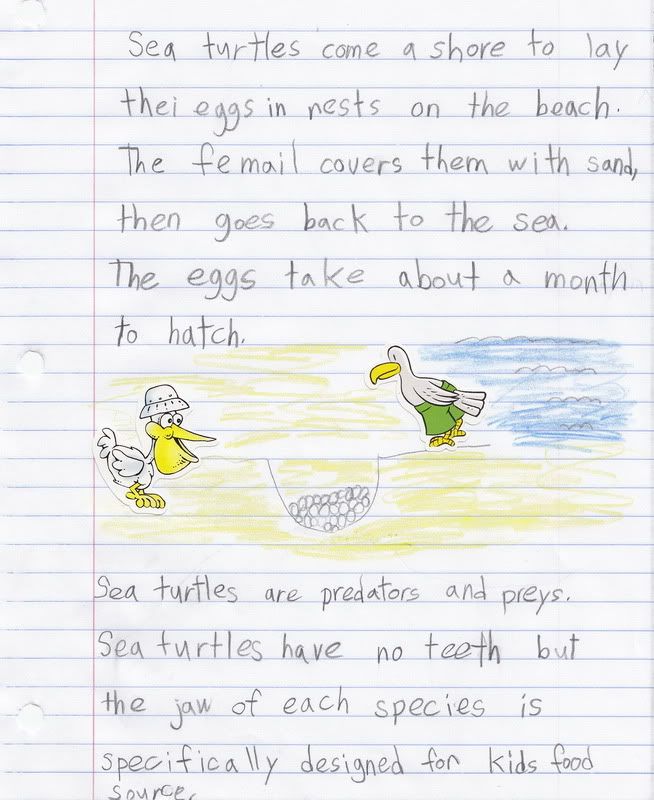 Sea turtles come a shore to lay
thei eggs in nests on the beach.
The femail covers them with sand,
then goes back to the sea.
The eggs take about a month
to hatch.
Sea turtles are predators and preys.
Sea turtles have no teeth but
the jaw of each species is
specifically designed for kids food
source.